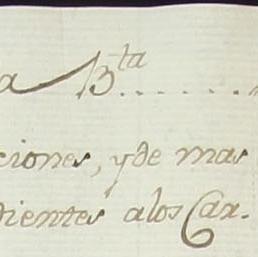 a B.ta ......
ciones, y de mas
dientes a los Car-